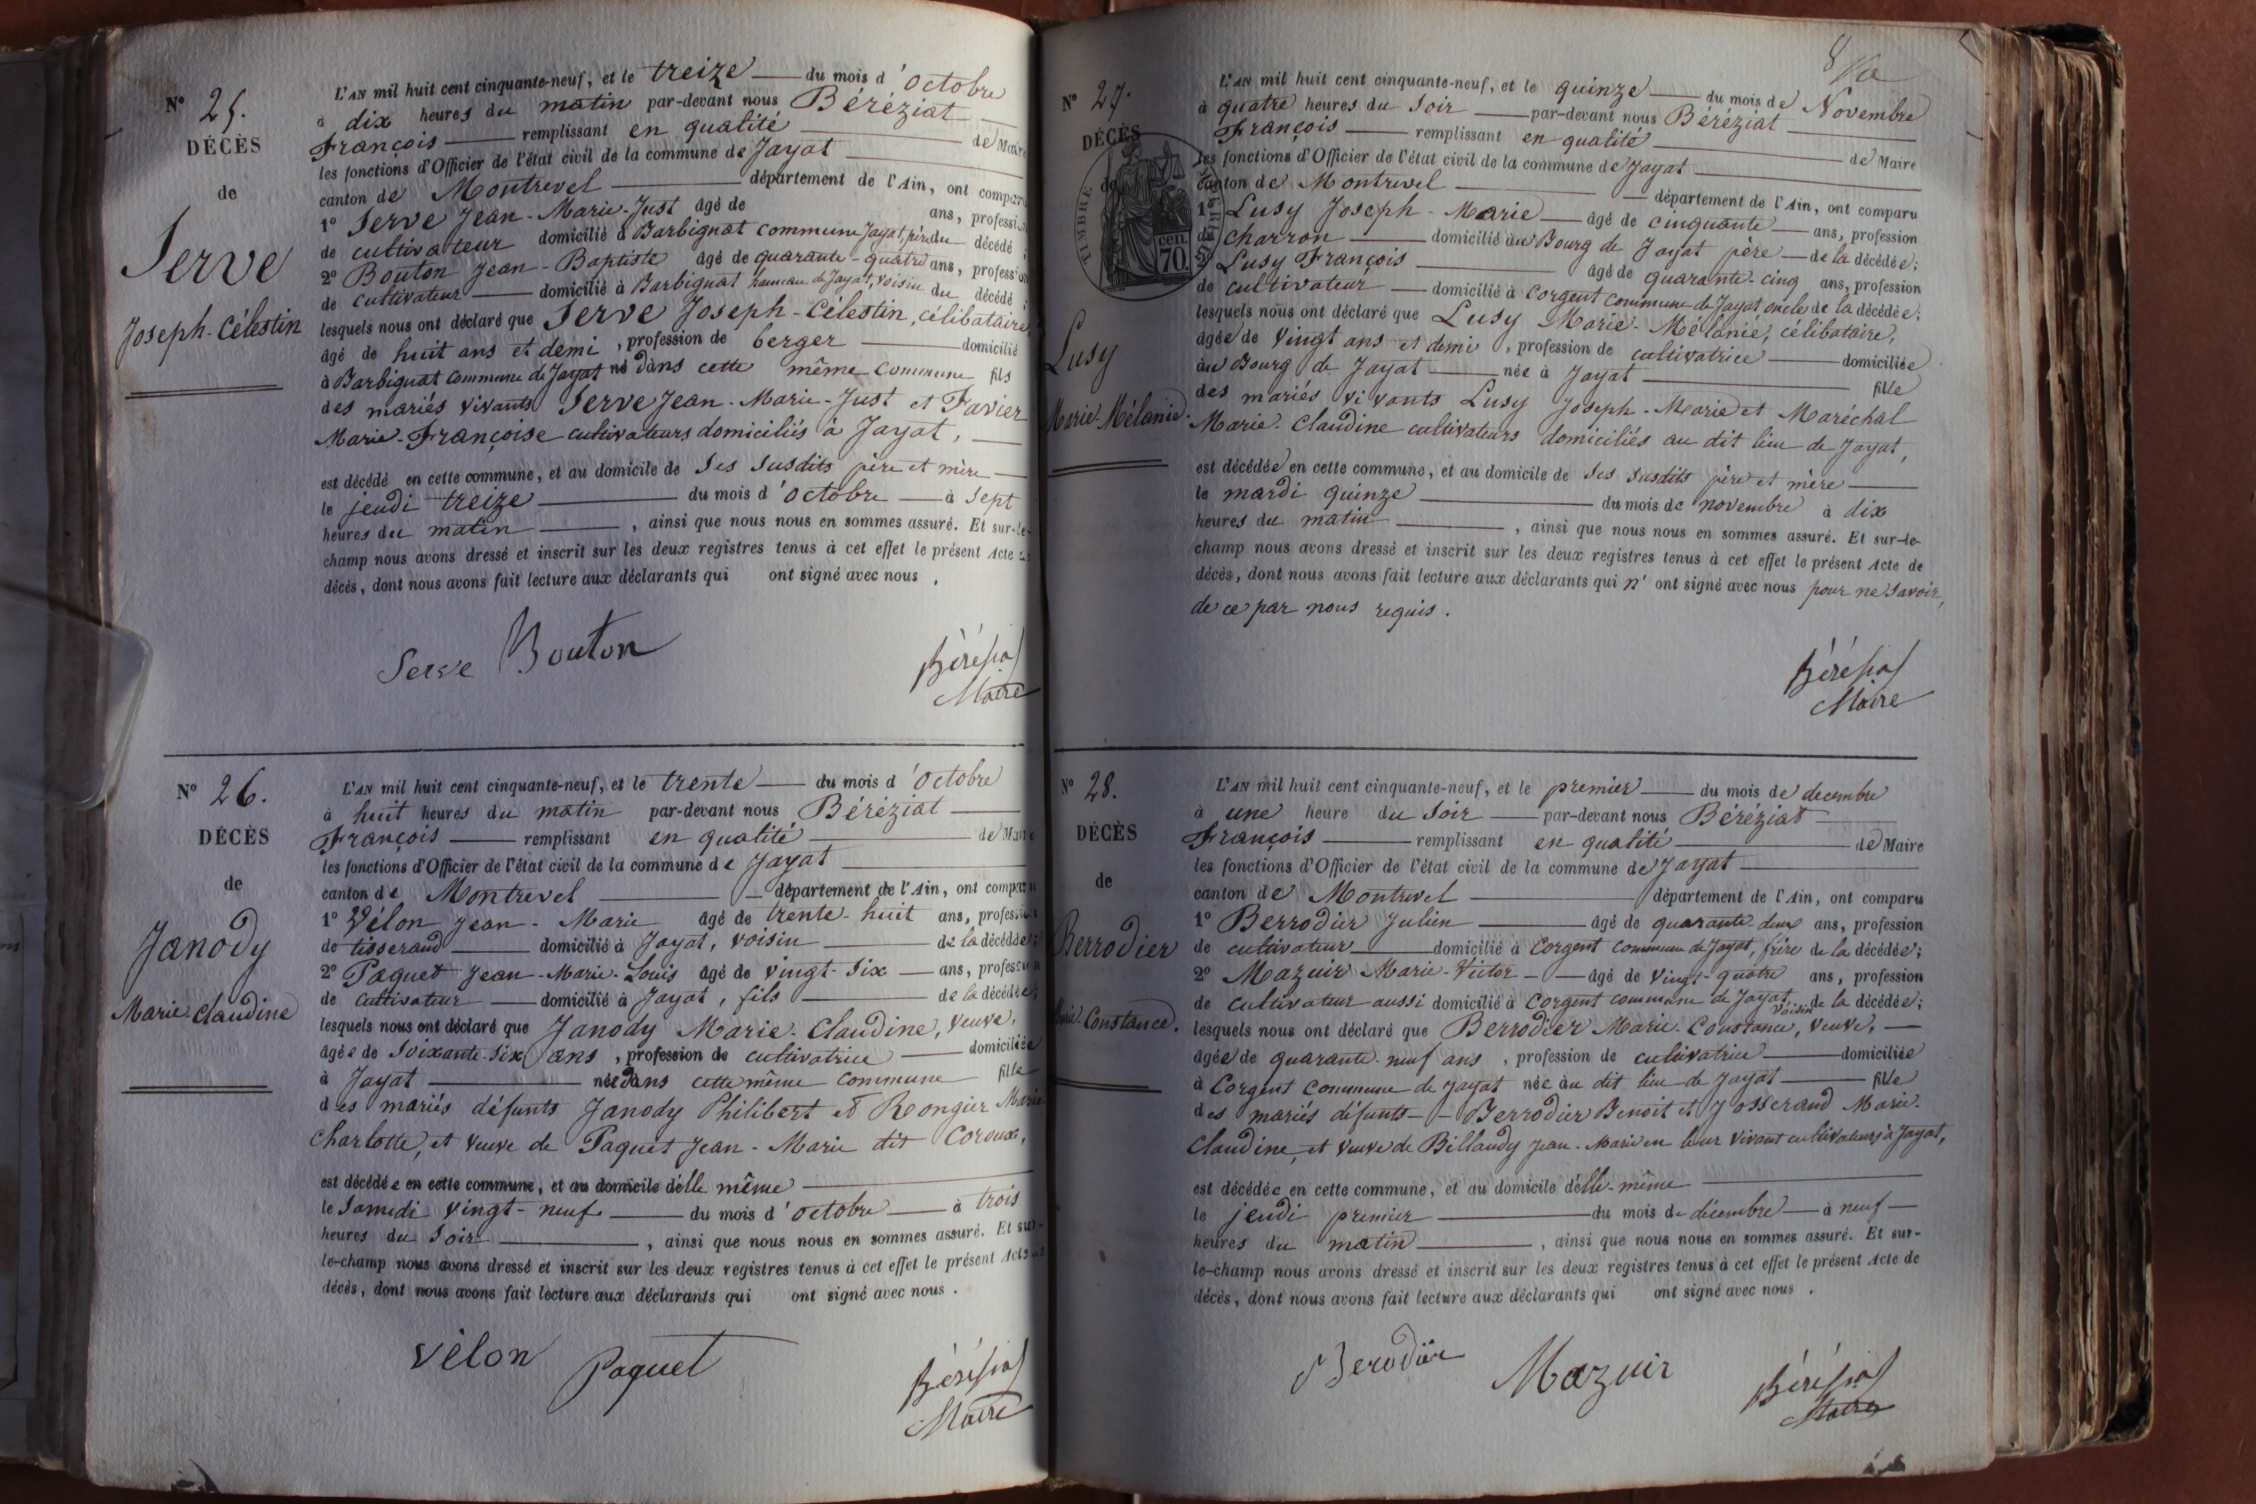 N° 25.
DÉCÈS
de
Serve
Joseph-Célestin
L'AN mil huit cent cinquante-neuf, et le treize du mois d'octobre
à dix heures du matin par-devant nous Béréziat
François remplissant en qualité de Maire
les fonctions d'Officier de l'état civil de la commune de Jayat
canton de Montrevel département de l'Ain, ont comparu
1° Serve Jean-Marie-Just âgé de ans, profession
de cultivateur domicilié à Barbignat commune Jayat, père du décédé ;
2° Bouton Jean-Baptiste âgé de quarante-quatre ans, profession
de cultivateur domicilié à Barbignat hameau de Jayat, voisin du décédé ;
lesquels nous ont déclaré que Serve Joseph-Célestin, célibataire
âgé de huit ans et demi, profession de berger domicilié
à Barbignat commune de Jayat né dans cette même commune fils
des mariés vivants Serve Jean-Marie-Just et Favier
Marie-Françoise cultivateurs domiciliés à Jayat,
est décédé en cette commune, et au domicile de ses susdits père et mère
le jeudi treize du mois d'octobre à sept
heures du matin, ainsi que nous nous en sommes assuré. Et sur-le-
champ nous avons dressé et inscrit sur les deux registres tenus à cet effet le présent Acte de
décès, dont nous avons fait lecture aux déclarants qui ont signé avec nous.
Serve Bouton Béréziat
Maire
N° 26.
DÉCÈS
de
Janody
Marie-Claudine
L'AN mil huit cent cinquante-neuf, et le trente du mois d'octobre
à huit heures du matin par-devant nous Béréziat
François remplissant en qualité de Maire
les fonctions d'Officier de l'état civil de la commune de Jayat
canton de Montrevel département de l'Ain, ont comparu
1° Vélon Jean-Marie âgé de trente-huit ans, profession
de tisserand domicilié à Jayat, voisin de la décédée ;
2° Paquet Jean-Marie-Louis âgé de vingt-six ans, profession
de cultivateur domicilié à Jayat, fils de la décédée ;
lesquels nous ont déclaré que Janody Marie-Claudine, veuve,
âgée de soixante-six ans, profession de cultivatrice domiciliée
à Jayat née dans cette même commune fille
des mariés défunts Janody Philibert et Rongier Marie
Charlotte, et veuve de Paquet Jean-Marie dit Coroux,
est décédée en cette commune, et au domicile d'elle même
le samedi vingt-neuf du mois d'octobre à trois
heures du soir, ainsi que nous nous en sommes assuré. Et sur-
le-champ nous avons dressé et inscrit sur les deux registres tenus à cet effet le présent Acte de
décès, dont nous avons fait lecture aux déclarants qui ont signé avec nous.
Vélon Paquet Béréziat
Maire
8
N° 27.
DÉCÈS
de
TIMBRE
cen.
70.
Lusy
Marie-Mélanie.
L'AN mil huit cent cinquante-neuf, et le quinze du mois de Novembre
à quatre heures du soir par-devant nous Béréziat
François remplissant en qualité de Maire
les fonctions d'Officier de l'état civil de la commune de Jayat
canton de Montrevel département de l'Ain, ont comparu
1° Lusy Joseph-Marie âgé de cinquante ans, profession
de charron domicilié au Bourg de Jayat père de la décédée ;
Lusy François âgé de quarante-cinq ans, profession
de cultivateur domicilié à Corgent commune de Jayat oncle de la décédée ;
lesquels nous ont déclaré que Lusy Marie-Mélanie, célibataire,
âgée de vingt ans et demi, profession de cultivatrice domiciliée
au Bourg de Jayat née à Jayat fille
des mariés vivants Lusy Joseph-Marie et Maréchal
Marie-Claudine cultivateurs domiciliés au dit lieu de Jayat,
est décédée en cette commune, et au domicile de ses susdits père et mère
le mardi quinze du mois de novembre à dix
heures du matin, ainsi que nous nous en sommes assuré. Et sur-le-
champ nous avons dressé et inscrit sur les deux registres tenus à cet effet le présent Acte de
décès, dont nous avons fait lecture aux déclarants qui n'ont signé avec nous pour ne savoir,
de ce par nous requis.
Béréziat
Maire
N° 28.
DÉCÈS
de
Berrodier
Marie-Constance.
L'AN mil huit cent cinquante-neuf, et le premier du mois de decembre
à une heure du soir par-devant nous Béréziat
François remplissant en qualité de Maire
les fonctions d'Officier de l'état civil de la commune de Jayat
canton de Montrevel département de l'Ain, ont comparu
1° Berrodier Julien âgé de quarante deux ans, profession
de cultivateur domicilié à Corgent commune de Jayat, frère de la décédée ;
2° Mazuir Marie-Victor âgé de vingt-quatre ans, profession
de cultivateur aussi domicilié à Corgent commune de Jayat voisin de la décédée ;
lesquels nous ont déclaré que Berrodier Marie-Constance, veuve,
âgée de quarante-neuf ans, profession de cultivatrice domiciliée
à Corgent commune de Jayat née au dit lieu de Jayat fille
des mariés défunts Berrodier Benoit et Josserand Marie-
Claudine, et veuve de Billaudy Jean-Marie en leur vivant cultivateurs à Jayat,
est décédée en cette commune, et au domicile d'elle-même
le jeudi premier du mois de décembre à neuf
heures du matin, ainsi que nous nous en sommes assuré. Et sur-
le-champ nous avons dressé et inscrit sur les deux registres tenus à cet effet le présent Acte de
décès, dont nous avons fait lecture aux déclarants qui ont signé avec nous.
Berodier Mazuir Béréziat
Maire